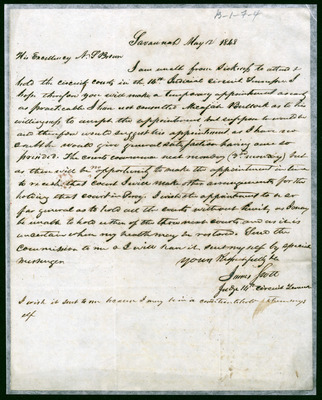 B-1-7-4
Savannah May 12 1848
His Excellency A. V. Brown
I am unable from Sickness to attend &
hold the circuit courts in the 16th Judicial circuit Tennessee I
hope therefore you will make a temporary appointment as early
as practicable I have not consulted Micajah Bullock as to his
willingness to accept the appointment but suppose he would do so
and therefore would suggest his appointment as I have no
doubt he would give general satisfaction having once so
presided. The courts commence next monday (2nd monday) but
as there will be no opportunity to make the appointment in time
to reach that court I will make other arrangements for the
holding that court in Perry. I wish the appointment to be so
far general as to hold all the courts in the circuit as I may
be unable to hold either of the courts and as it is
uncertain when my health may be restored. Send the
commission to me & I will have it sent myself by special
messenger.
yours Respectfully &c
James Scott
Judge 16th circuit Tennessee
I wish it sent to me because I may be in a condition to hold some myself